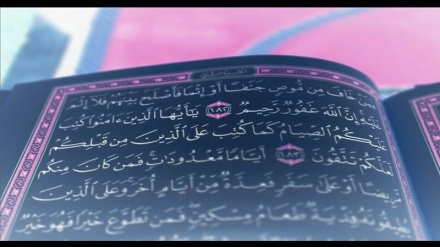 فمن خاف من موص جنفا أو إثما فأصلح بينهم فلا إثم
عليه إن الله غفور رحيم ١٨٢ يأيها الذين ءامنوا كتب
عليكم الصيام كما كتب على الذين من قبلكم
لعلكم تتقون ١٨٣ أياما معدودات فمن كان منكم
مريضا أو على سفر فعدة من أيام أخر وعلى الذين
يطيقونه فدية طعام مسكين فمن تطوع خيرا فهو خير